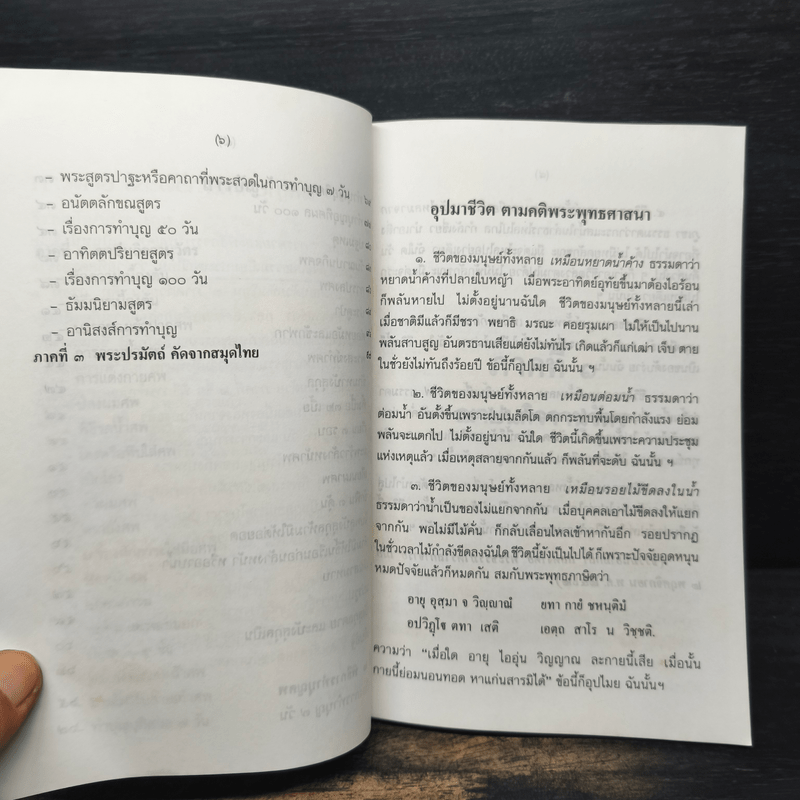 (๖)
- พระสูตรปาฐะหรือคาถาที่พระสวดในการทำบุญ ๗ วัน
- อนัตตลักขณสูตร
- เรื่องการทำบุญ ๕๐ วัน
- อาทิตตปริยายสูตร
- เรื่องการทำบุญ ๑๐๐ วัน
- ธัมมนิยามสูตร
- อานิสงส์การทำบุญ
ภาคที่ ๓ พระปรมัตถ์ คัดจากสมุดไทย
อุปมาชีวิต ตามคติพระพุทธศาสนา
๑. ชีวิตของมนุษย์ทั้งหลาย เหมือนหยาดน้ำค้าง ธรรมดาว่า
หยาดน้ำค้างที่ปลายใบหญ้า เมื่อพระอาทิตย์อุทัยขึ้นมาต้องไอร้อน
ก็พลันหายไป ไม่ตั้งอยู่นานฉันใด ชีวิตของมนุษย์ทั้งหลายนี้เล่า
เมื่อชาติมีแล้วก็มีชรา พยาธิ มรณะ คอยรุมเผา ไม่ให้เป็นไปนาน
พลันสาบสูญ อันตรธานเสียแต่ยังไม่ทันไร เกิดแล้วก็แก่เฒ่า เจ็บ ตาย
ในชั่วยังไม่ทันถึงร้อยปี ข้อนี้ก็อุปไมย ฉันนั้น ฯ
๒. ชีวิตของมนุษย์ทั้งหลาย เหมือนต่อมน้ำ ธรรมดาว่า
ต่อมน้ำ อันตั้งขึ้นเพราะฝนเมล็ดโต ตกกระทบพื้นโดยกำลังแรง ย่อม
พลันจะแตกไป ไม่ตั้งอยู่นาน ฉันใด ชีวิตนี้เกิดขึ้นเพราะความประชุม
แห่งเหตุแล้ว เมื่อเหตุสลายจากกันแล้ว ก็พลันที่จะดับ ฉันนั้น ฯ
๓. ชีวิตของมนุษย์ทั้งหลาย เหมือนรอยไม้ขีดลงในน้ำ
ธรรมดาว่าน้ำเป็นของไม่แยกจากกัน เมื่อบุคคลเอาไม้ขีดลงให้แยก
จากกัน พอไม่มีไม้คั่น ก็กลับเลื่อนไหลเข้าหากันอีก รอยปรากฏ
ในชั่วเวลาไม้กำลังขีดลงฉันใด ชีวิตนี้ยังเป็นไปได้ ก็เพราะปัจจัยอุดหนุน
หมดปัจจัยแล้วก็หมดกัน สมกับพระพุทธภาษิตว่า
อายุ อุสฺมา จ วิญฺญาณํ ยทา กายํ ชหนฺติมํ
อปวิฏฺโฐ ตทา เสติ เอตฺถ สาโร น วิชฺชติ.
ความว่า “เมื่อใด อายุ ไออุ่น วิญญาณ ละกายนี้เสีย เมื่อนั้น
กายนี้ย่อมนอนทอด หาแก่นสารมิได้” ข้อนี้ก็อุปไมย ฉันนั้นฯ